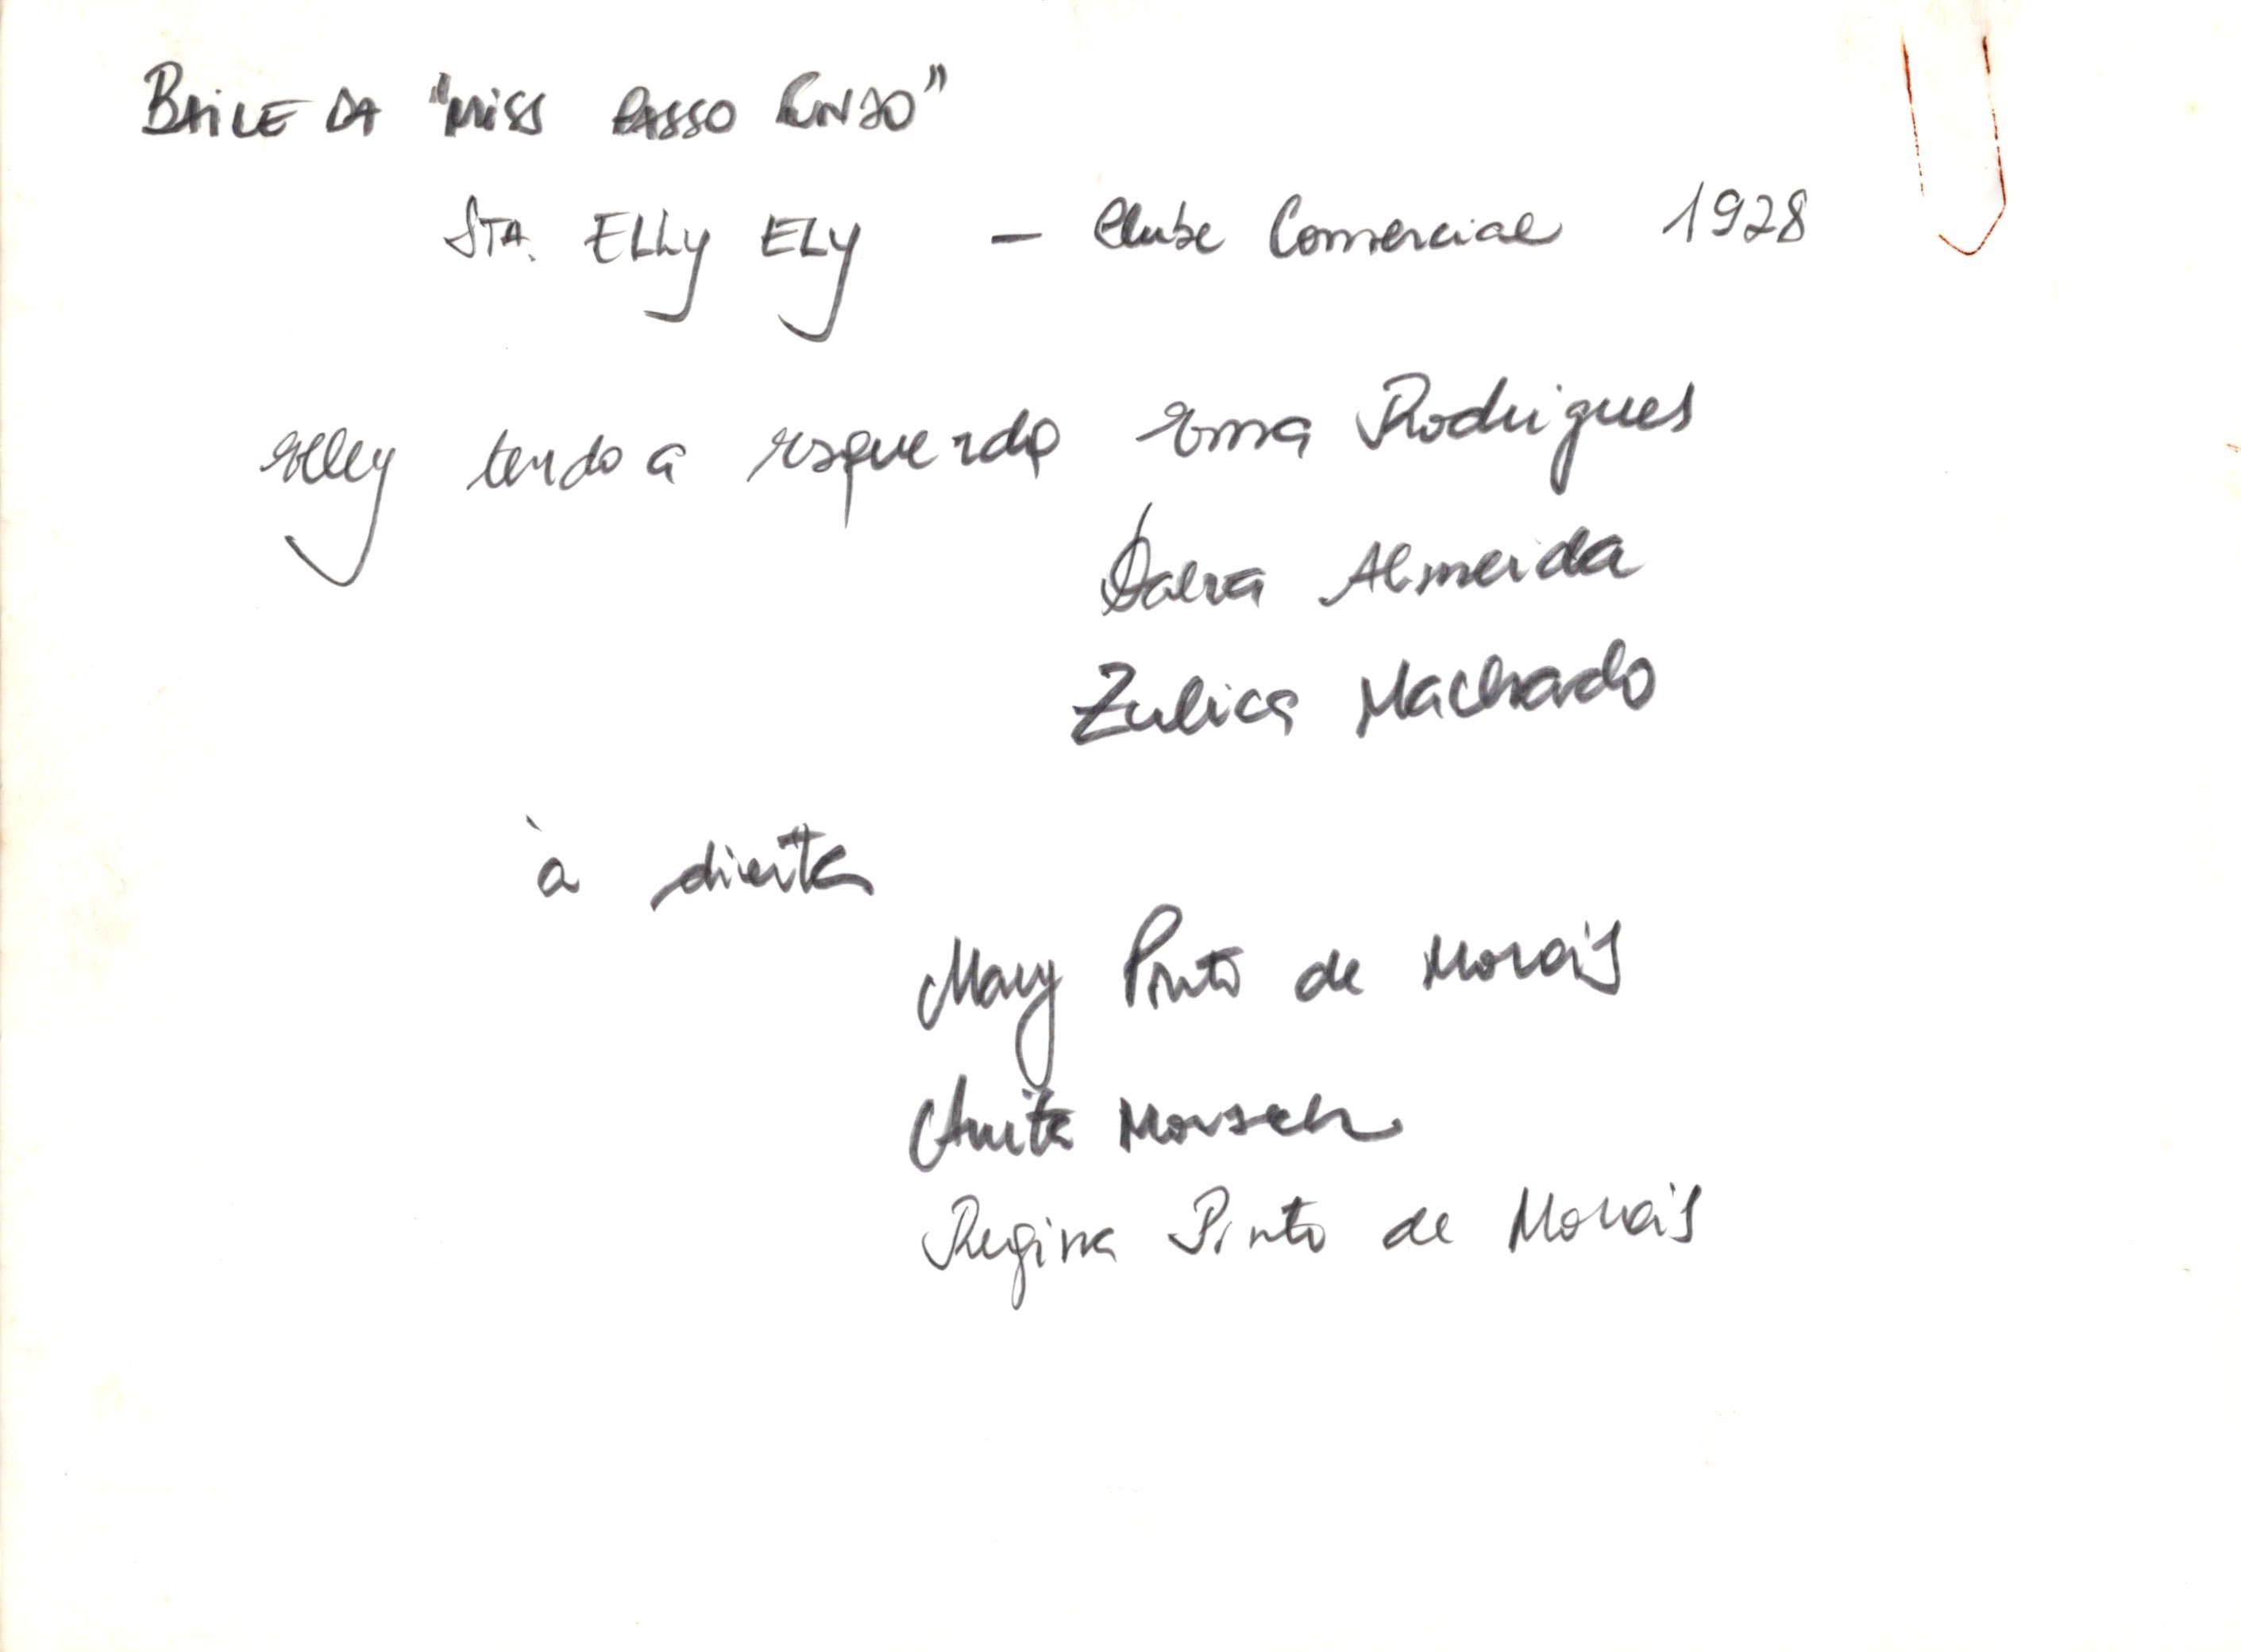 BAILE DA "MISS PASSO FUNDO"
STA. ELLY ELY — Clube Comercial 1928
Elly tendo a esquerda Ema Rodrigues
Dalva Almeida
Zulica Machado
à direita
Mary Pinto de Morais
Anita Morsch
Regina Pinto de Morais